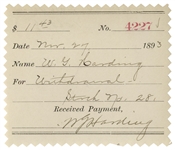 $ 11 45 No. 4227
Date Nov. 27 1893
Name W. G. Harding
For Withdrawal
No. 28.
Received Payment,
W G Harding